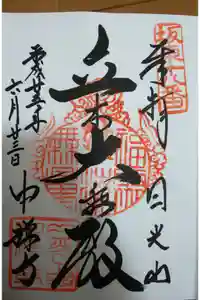 坂東十八番
奉拝 日光山
立木大悲殿
平成廿五年
六月廿三日
中禪寺